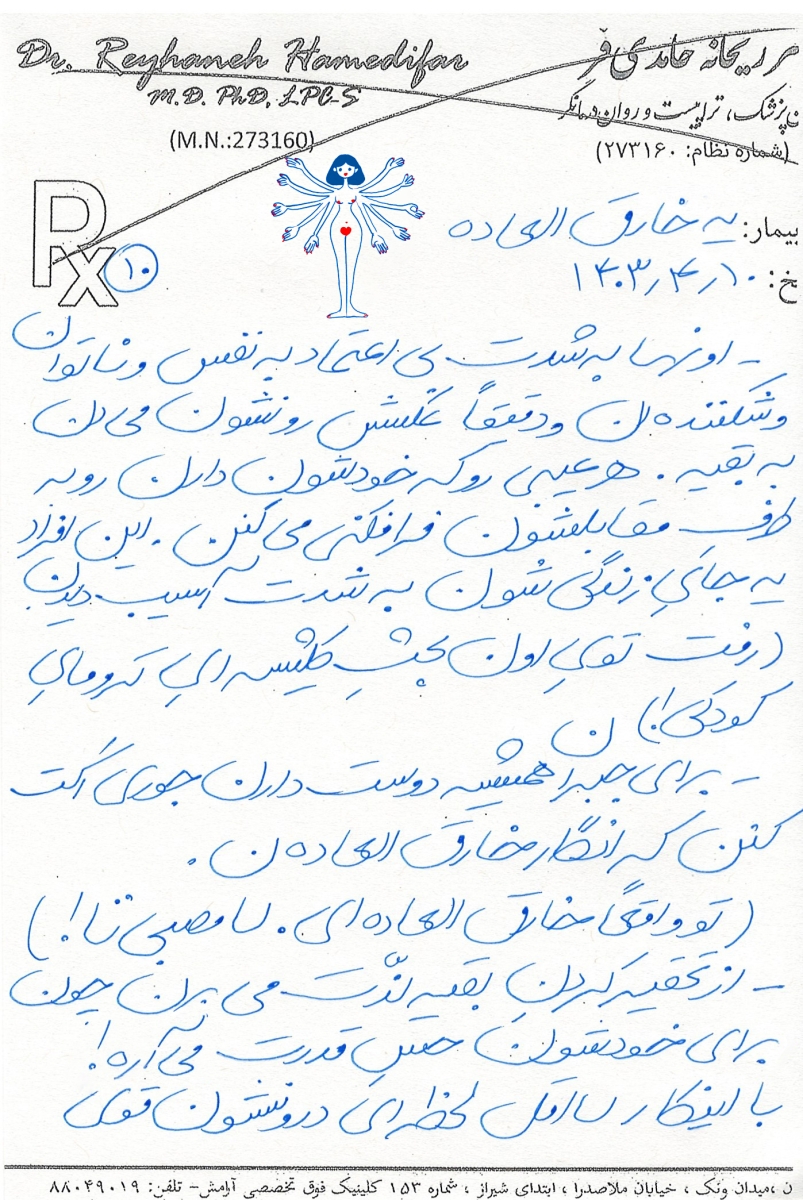 Dr. Reyhaneh Hamedifar
M.D. PhD, LPC-S
(M.N.:273160)
ریحانه حامدی فر
پزشک، تراپیست و روان درمانگر
(شماره نظام: ۲۷۳۱۶۰)
Rx
۱۰
بیمار: یه خارق العاده
خ: ۱۴۰۳٫۴٫۱۰
- اونها به شدت بی اعتماد به نفس و ناتوان
و شکننده ان و دقیقاً عکسش رو نشون می دن
به بقیه. هر عیبی رو که خودشون دارن رو به
طرف مقابلشون فرافکنی می کنن. این افراد
یه جای زندگی شون به شدت آسیب دیدن
(رفت توی اون بحثِ کلیشه ایِ ترومایِ
کودکی!)
- برای جبران همیشه دوست دارن جوری اکت
کنن که انگار خارق العاده ن.
(تو واقعاً خارق العاده ای. لامصبی تنا!)
- از تحقیر کردن بقیه لذّت می برن چون
برای خودشون حسِ قدرت می آره!
با اینکار لااقل لحظه ای درونشون قوی
ن ،میدان ونک ، خیابان ملاصدرا ، ابتدای شیراز ، شماره ۱۵۳ کلینیک فوق تخصصی آرامش- تلفن: ۸۸۰۴۹۰۱۹